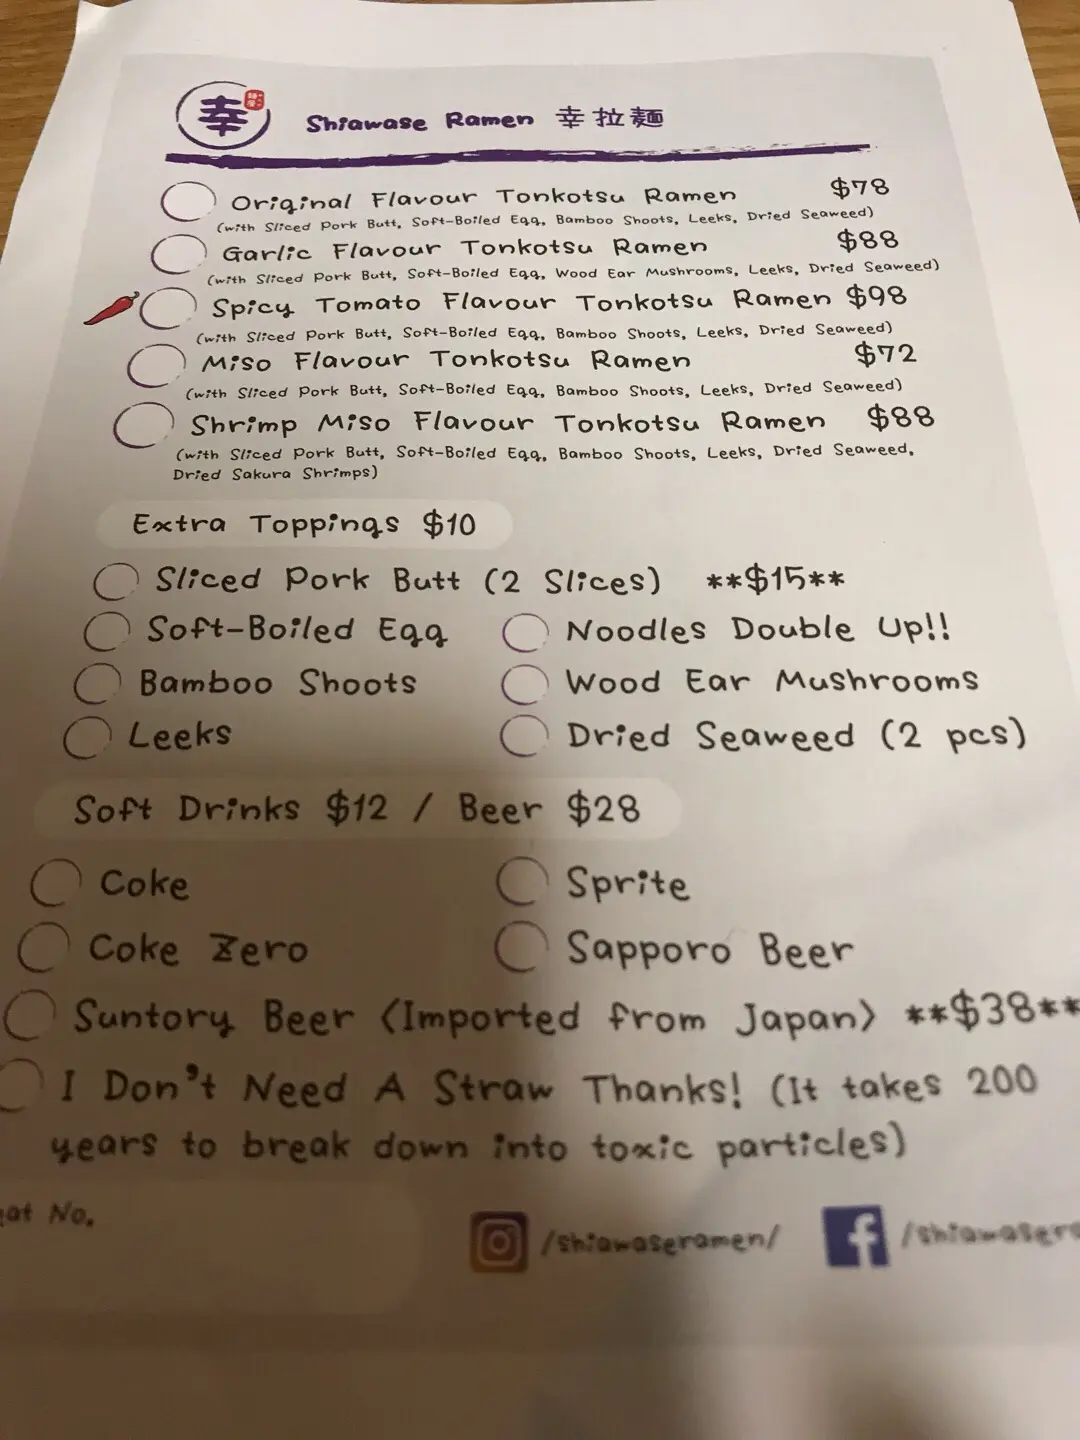 幸
Shiawase Ramen 幸拉麵
Original Flavour Tonkotsu Ramen $78
(with Sliced Pork Butt, Soft-Boiled Egg, Bamboo Shoots, Leeks, Dried Seaweed)
Garlic Flavour Tonkotsu Ramen $88
(with Sliced Pork Butt, Soft-Boiled Egg, Wood Ear Mushrooms, Leeks, Dried Seaweed)
Spicy Tomato Flavour Tonkotsu Ramen $98
(with Sliced Pork Butt, Soft-Boiled Egg, Bamboo Shoots, Leeks, Dried Seaweed)
Miso Flavour Tonkotsu Ramen $72
(with Sliced Pork Butt, Soft-Boiled Egg, Bamboo Shoots, Leeks, Dried Seaweed)
Shrimp Miso Flavour Tonkotsu Ramen $88
(with Sliced Pork Butt, Soft-Boiled Egg, Bamboo Shoots, Leeks, Dried Seaweed,
Dried Sakura Shrimps)
Extra Toppings $10
Sliced Pork Butt (2 Slices) **$15**
Soft-Boiled Egg Noodles Double Up!!
Bamboo Shoots Wood Ear Mushrooms
Leeks Dried Seaweed (2 pcs)
Soft Drinks $12 / Beer $28
Coke Sprite
Coke Zero Sapporo Beer
Suntory Beer <Imported from Japan> **$38**
I Don't Need A Straw Thanks! (It takes 200
years to break down into toxic particles)
eat No. /shiawaseramen/ /shiawasera